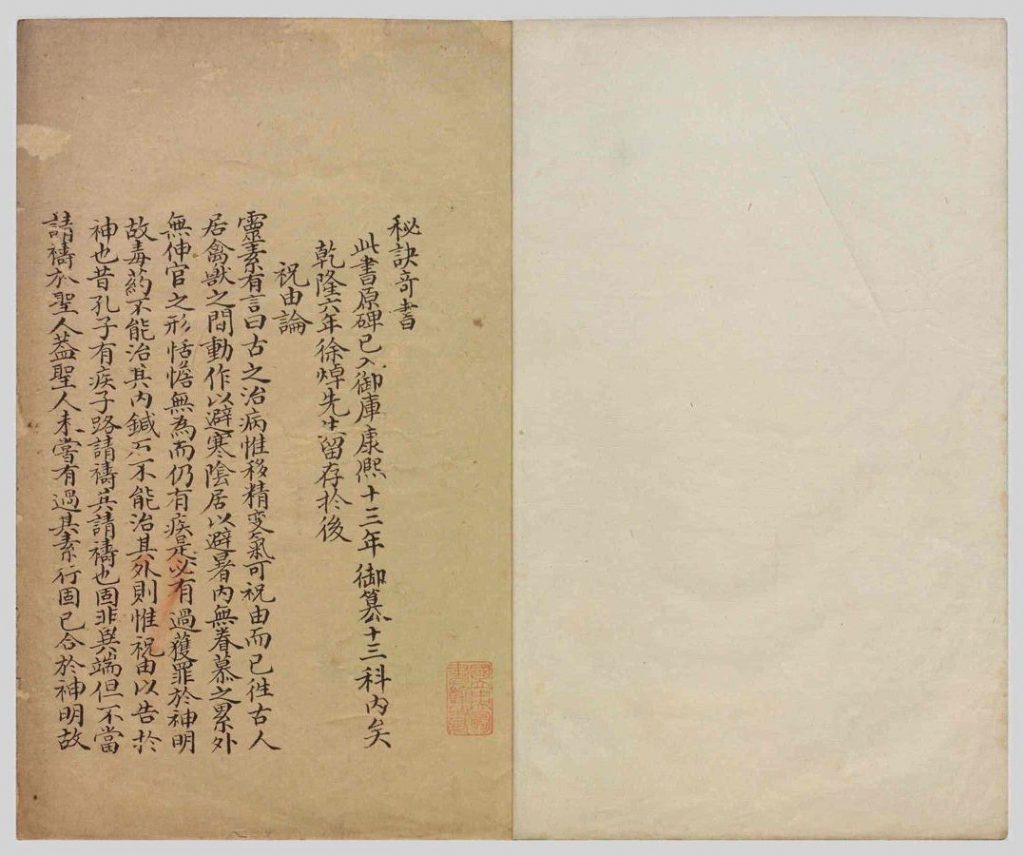 秘訣奇書
此書原碑已入御庫康熙十三年御纂十三科内矣
乾隆六年徐焯先生留存扵後
祝由論
靈素有言曰古之治病惟移精変氣可祝由而已徃古人
居禽獸之間動作以避寒陰居以避暑内無眷慕之累外
無伸官之形恬憺無為而仍有疾是必有過獲罪於神明
故毒药不能治其内鍼石不能治其外則惟祝由以告扵
神也昔孔子有疾子路請禱其請禱也固非異端但不當
請禱扵聖人葢聖人未嘗有過其素行固已合於神明故